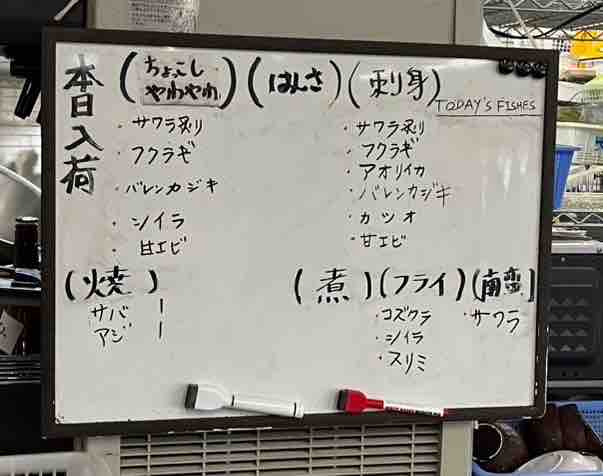 本日入荷
(ちょっこし
やわやわ)
・サワラ炙り
・フクラギ
・バレンカジキ
・シイラ
・甘エビ
(はんさ)
(刺身)
TODAY'S FISHES
・サワラ炙り
・フクラギ
・アオリイカ
・バレンカジキ
・カツオ
・甘エビ
(焼)
サバ ー
アジ ー
(煮)
(フライ)
・コズクラ
・シイラ
・スリミ
(南蛮)
・サワラ